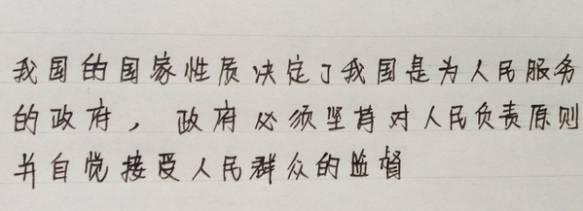 我国的国家性质决定了我国是为人民服务
的政府，政府必须坚持对人民负责原则
并自觉接受人民群众的监督